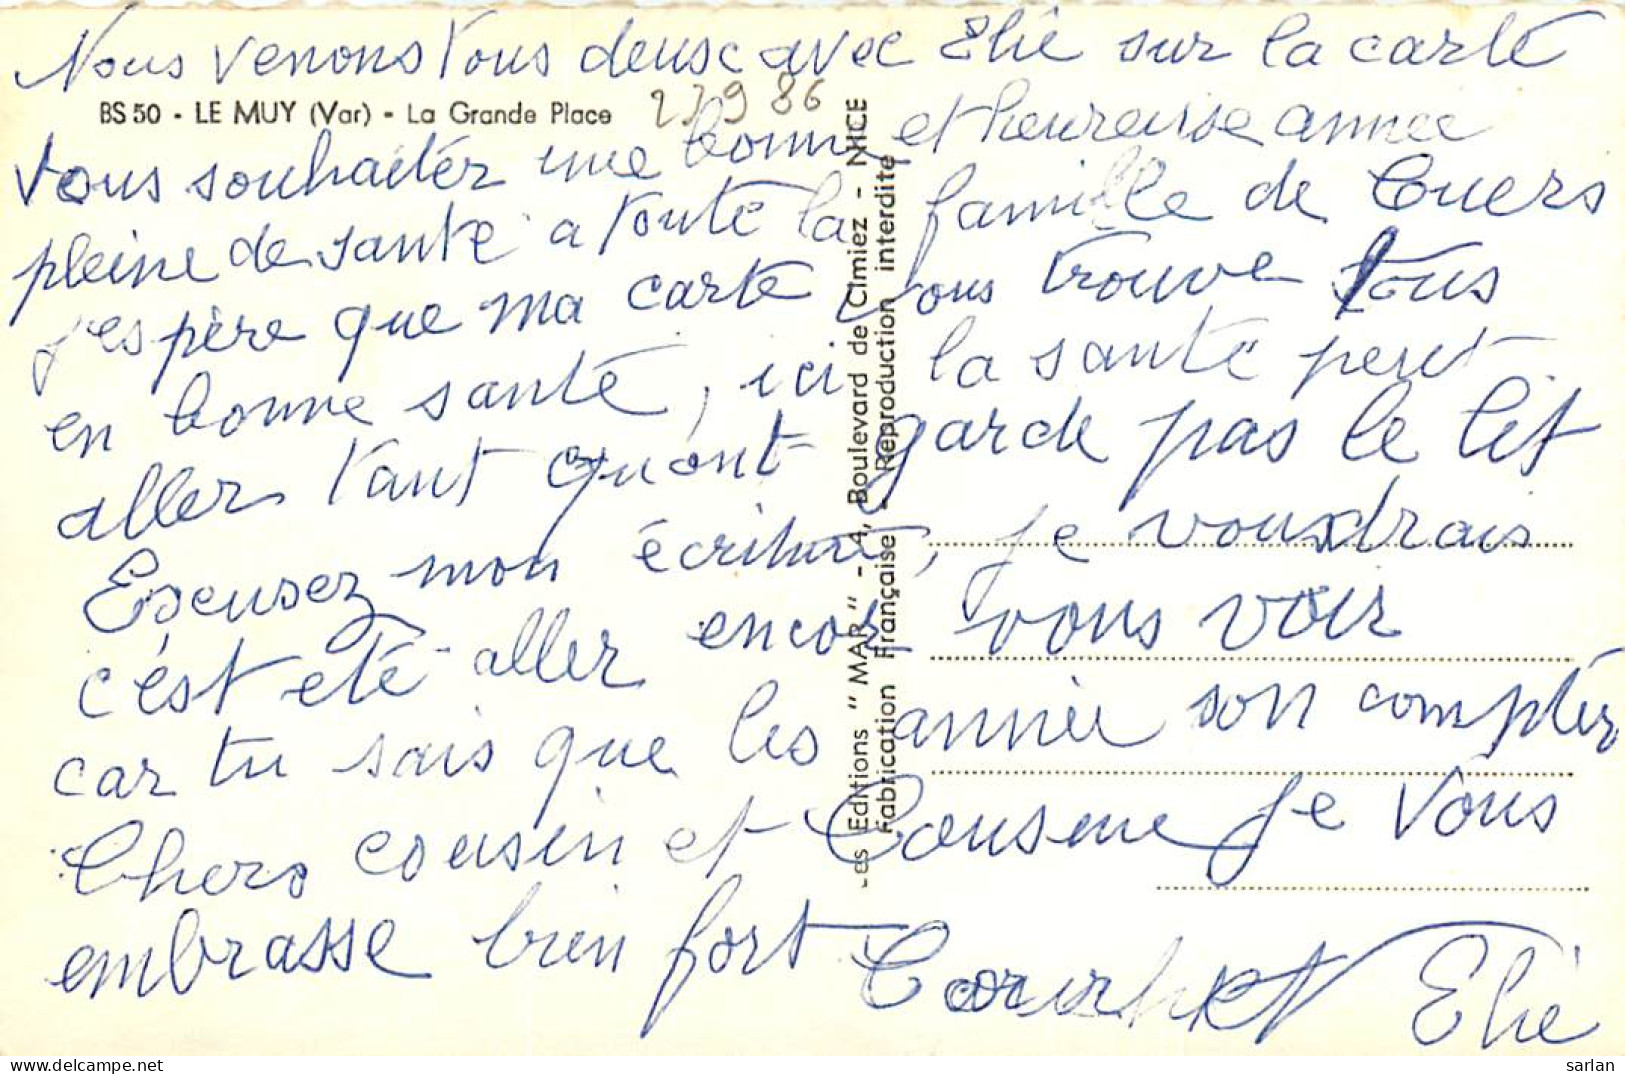 Nous venons Tous deusc avec Elie sur la carte
BS 50 - LE MUY (Var) - La Grande Place
27 9 86
vous souhaiter une bonne et heureuse annee
pleine de santé a toute la famille de Cuers
j'espère que ma carte vous trouve tous
en bonne santé, ici la santé peut
aller tant quont garde pas le lit
Escusez mon écriture, je voudrais
c'est eté aller encor vous voir
car tu sais que les année son compter
Chers cousin et Cousine je vous
embrasse bien fort
Elie
Les Editions "MAR" - 4, Boulevard de Cimiez - NICE
Fabrication Française - Reproduction interdite
sarlan